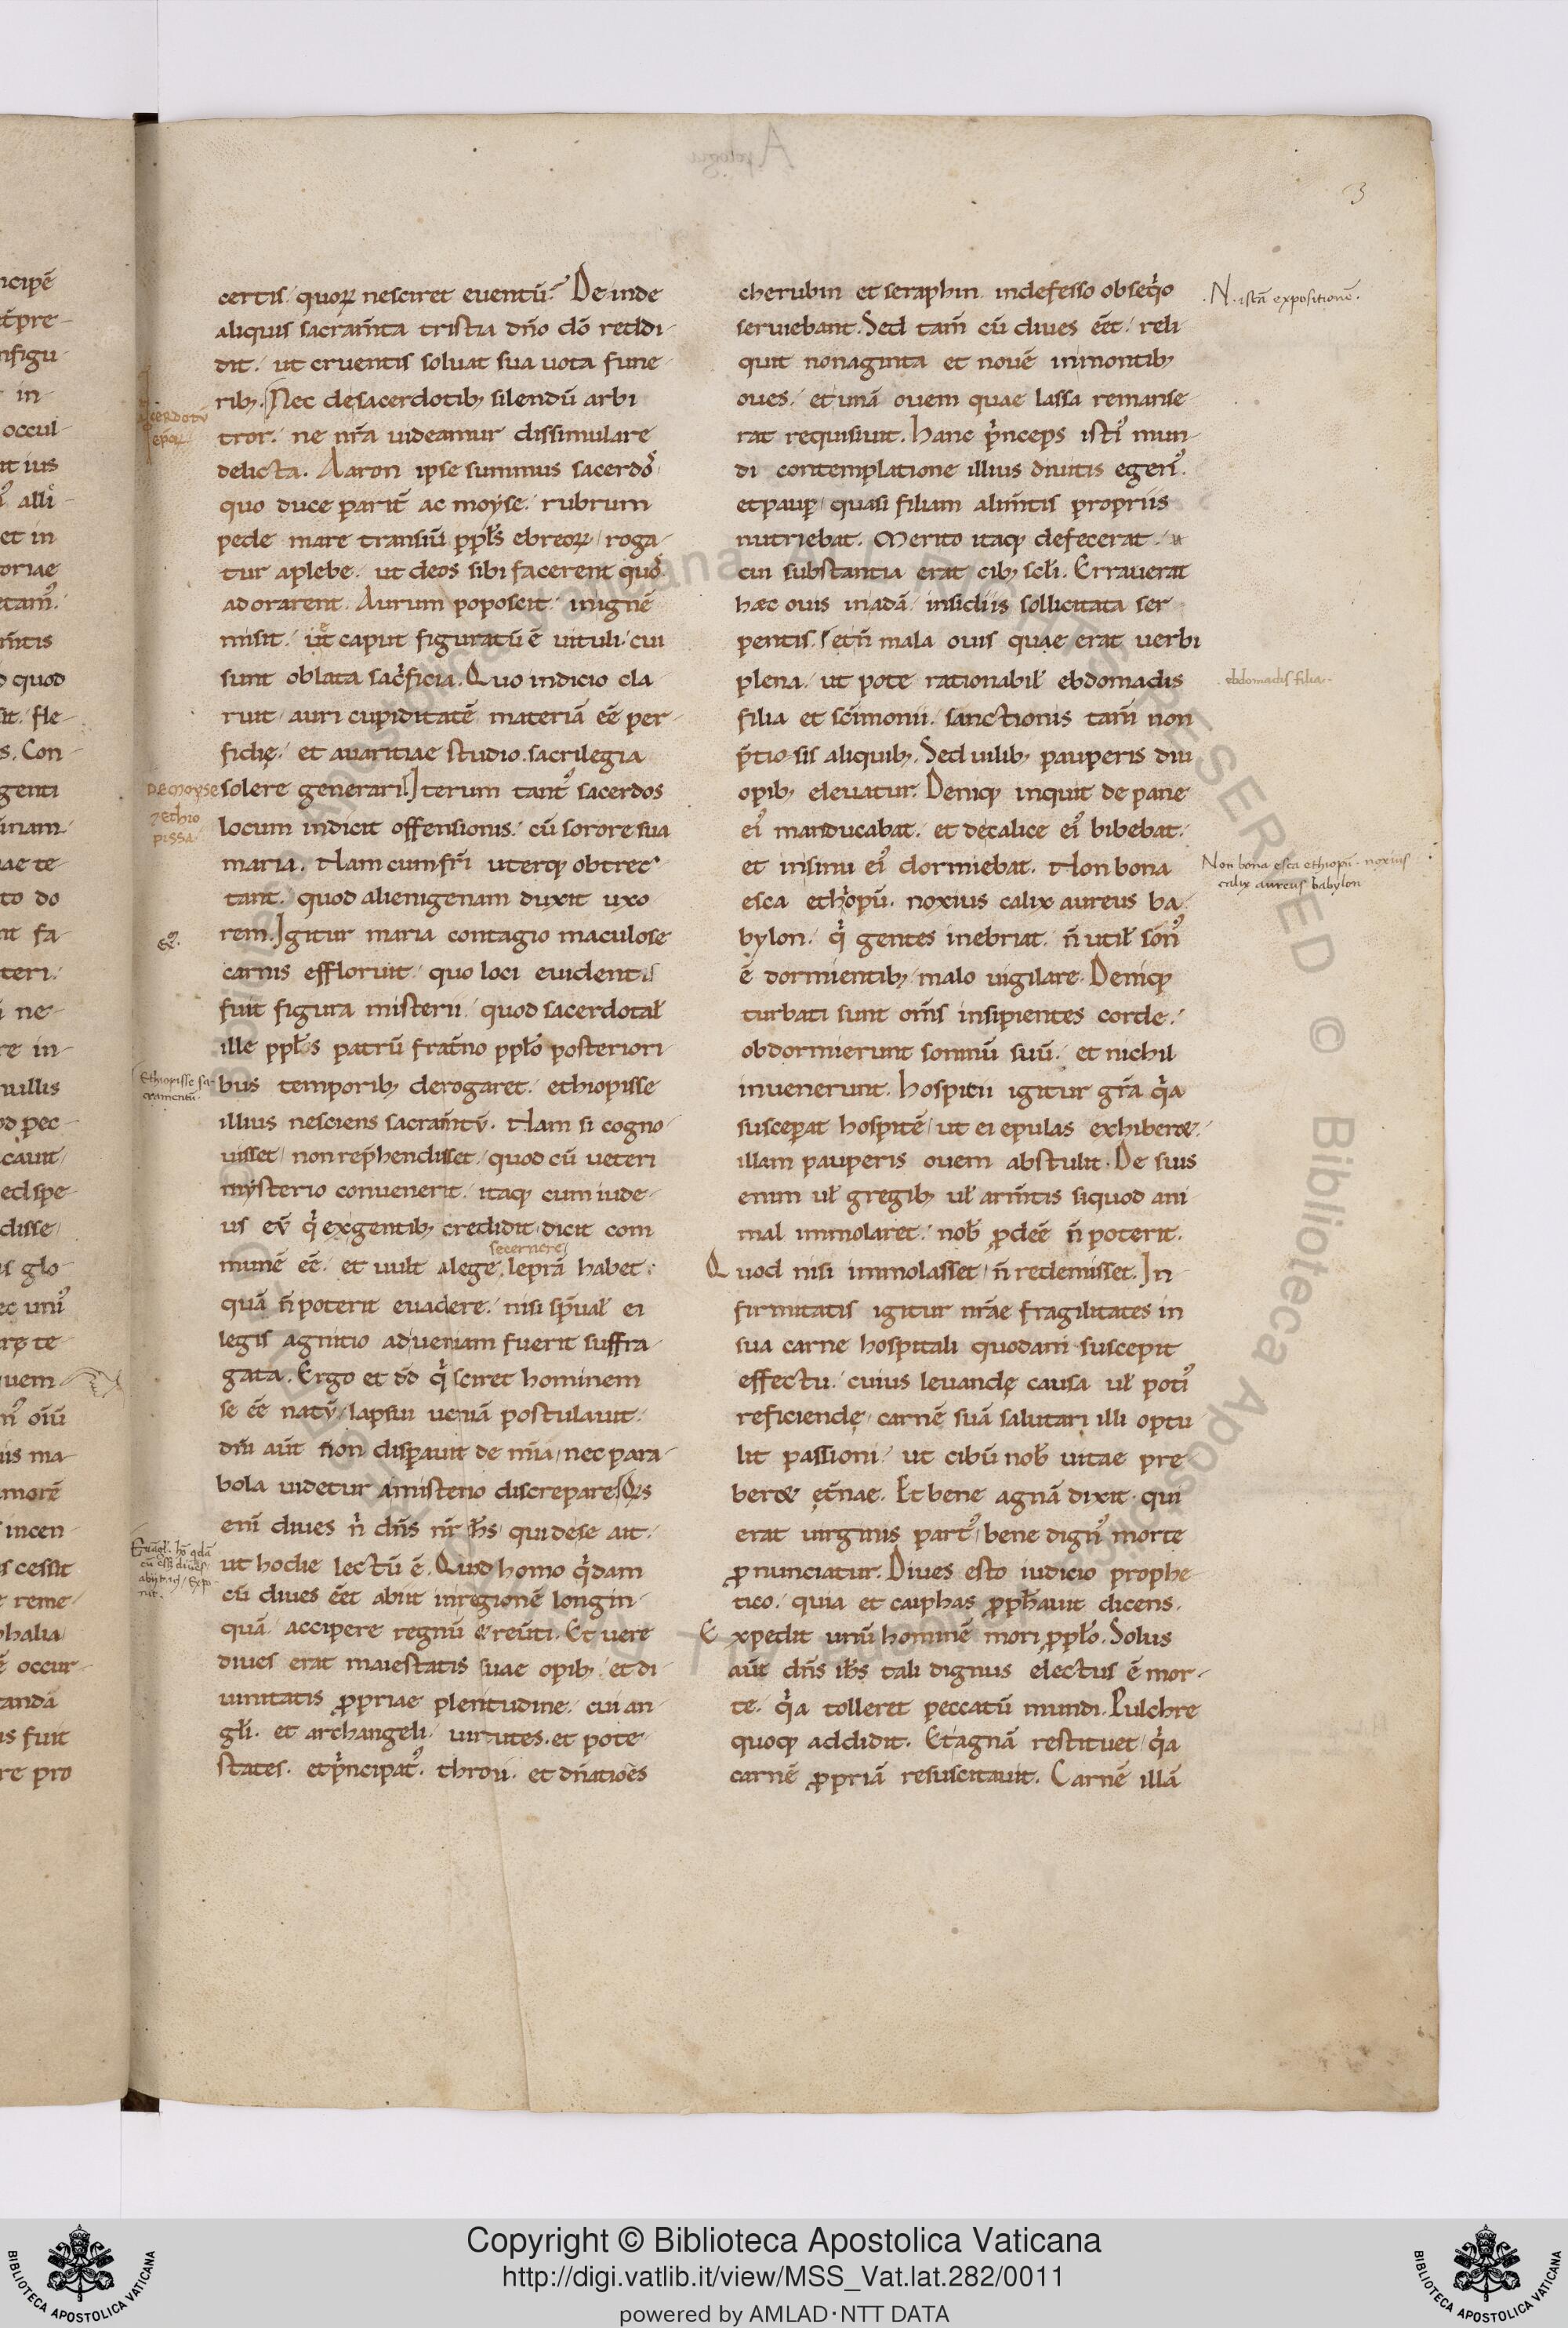 3
certis quoꝝ nesciret euentū? De inde
aliquis sacram̄ta tristia dn̄o dō reddi-
dit. ut cruentis soluat sua uota fune-
ribꝫ. Nec desacerdotibꝫ silendū arbi
tror. ne nr̄a uideamur dissimulare
delicta. Aaron ipse summus sacerdos
quo duce parit̄ ac moyse. rubrum
pede mare transiūi ppl̄s ebreoꝝ roga-
tur aplebe. ut deos sibi facerent quos
adorarent. Aurum poposcit. inignē
misit. caput figuratū ē uituli. cui
sunt oblata sacrificia. Quo indicio cla
ruit auri cupiditatē materiā eē per-
fidię. et auaritiae studio sacrilegia
solere generari. Iterum tant᾽ sacerdos
locum indicit offensionis. cū sorore sua
maria. Nam cumfr̄i uterqꝫ obtrec
tant. quod alienigenam duxit uxo
rem. Igitur maria contagio maculose
carnis effloruit. quo loci euidentis
fuit figura misterii. quod sacerdotal̄
ille ppl̄s patrū frat̄no ppl̄o posteriori
bus temporibꝫ derogaret. ethiopisse
illius nesciens sacram̄tū. Nam si cogno-
uisset non rep̄hendisset. quod cū ueteri
mysterio conuenerit. itaqꝫ cum iude-
us eū qͥ exgentibꝫ credidit dicit com
secernere
munē eē. et uult alege leprā habet.
quā n̄ poterit euadere. nisi sp̄ual̄ ei
legis agnitio adueniam fuerit suffra-
gata. Ergo et dd̄ qͥ sciret hominem
se eē natū lapsui ueniā postulauit.
dn̄i aūt n̄on disparauit de mīa nec para-
bola uidetur amisterio discrepare. Qͥs
enī diues nͥ dn̄s nr̄ ih̄s qui dese ait.
ut hodie lectū ē. Quod homo qͥdam
cū diues eēt abiit inregionē longin-
quā accipere regnū & reūti. Et uere
diues erat maiestatis suae opibꝫ et di-
uinitatis ꝓpriae plenitudine. cui an-
gl̄i. et archangeli. uirtutes. et pote-
states. etpͥncipat᾽. throni. et dn̄atioēs
cherubin et seraphin indefesso obseqͥo
seruiebant. Sed tam̄ cū diues eēt. reli-
quit nonaginta et nouē inmontibꝫ
oues. et unā ouem quae lassa remanse-
rat requisiuit. Hanc pͥnceps isti᾽ mun-
di contemplatione illius diuitis egen᾽.
etpauꝑ quasi filiam alim̄tis propriis
nutriebat. Merito itaqꝫ defecerat.
cui substantia erat cibꝫ scl̄i. Errauerat
hæc ouis inadā. insidiis sollicitata ser
pentis. setn̄ mala ouis quae erat uerbi
plena. ut pote rationabil̄ ebdomadis
filia et sc̄imonii. sanctionis tam̄ non
p̄tio sis aliquibꝫ. Sed uilibꝫ pauperis diu
opibꝫ eleuatur. Deniqꝫ inquit de pane
ei᾽ manducabat. et decalice ei᾽ bibebat.
et insinu ei᾽ dormiebat. Non bona
esca ethͥopū. noxius calix aureus ba
bylon. qͥ gentes inebriat. n̄ util̄ sōn᾽
ē dormientibꝫ malo uigilare. Deniqꝫ
turbati sunt om̄s insipientes corde.
obdormierunt somnū suū. et nichil
inuenerunt. Hospitii igitur gr̄a qͥa
susceperat hospitē ut ei epulas exhiber&.
illam pauperis ouem abstulit. De suis
enim ul̄ gregibꝫ ul̄ arm̄tis siquod ani
mal immolaret. nob̄ ꝓdeē n̄ poterit.
Quod nisi immolasset n̄ redemisset. In
firmitatis igitur nr̄ae fragilitates in
sua carne hospitali quodam suscepit
effectu. cuius leuandę causa ul̄ poti᾽
reficiendę carnē suā salutari illi optu
lit passioni. ut cibū nob̄ uitae pre
ber& ęt̄nae. Et bene agnā dixit. qui
erat uirginis part᾽ bene dign᾽ morte
ꝓnunciatur. Diues esto iudicio prophe-
tico. quia et caiphas ꝓph̄auit dicens.
Expedit unū hominē mori ꝓppl̄o. Solus
aūt dn̄s ih̄s tali dignus electus ē mor-
te. qͥa tolleret peccatū mundi. Pulchre
quoqꝫ addidit. Etagnā restituet qͥa
carnē ꝓpriā resuscitauit. Carnē illā
DEMOYSE
⁊ ethio
pissa
Ethiopisse sa-
cramentū
N. istā expositionē.
ebdomadis filia.
Non bona esca ethiopū. noxius
calix aureus babylon
Copyright © Biblioteca Apostolica Vaticana
http://digi.vatlib.it/view/MSS_Vat.lat.282/0011
powered by AMLAD·NTT DATA
BIBLIOTECA APOSTOLICA VATICANA
BIBLIOTECA APOSTOLICA VATICANA